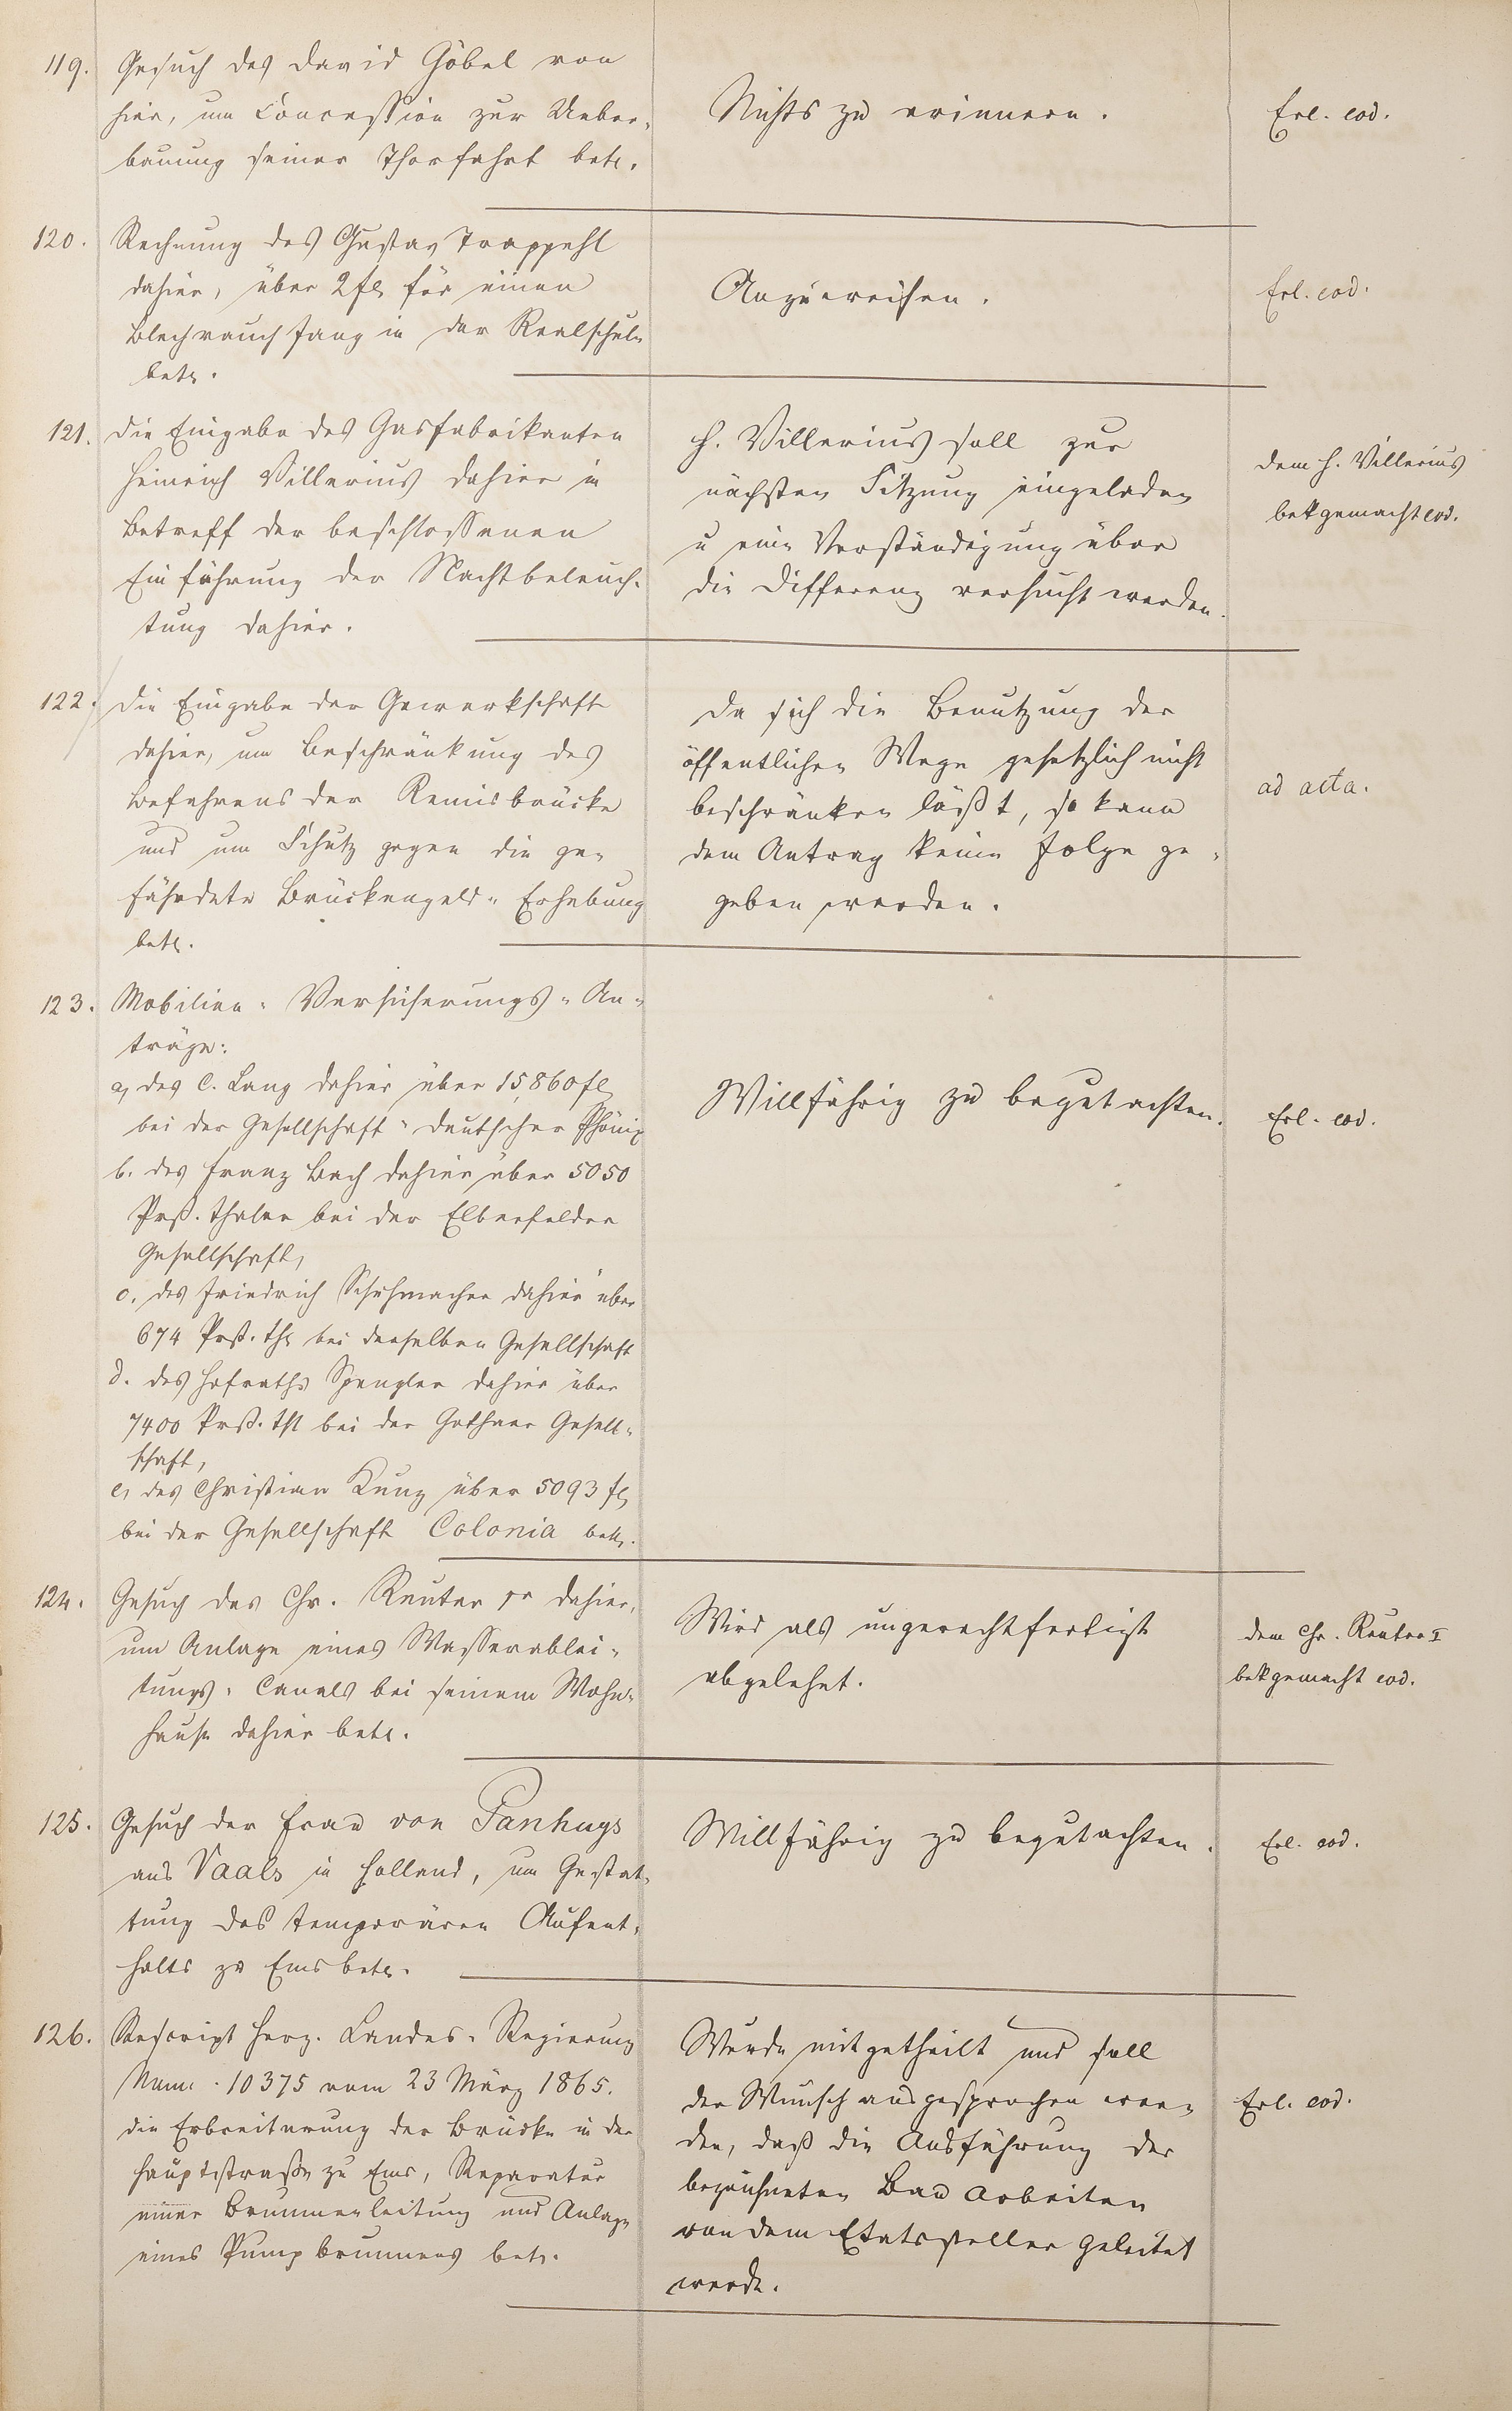 119. Gesuch des David Göbel von
hier, um Concession zur Ueber-
bauung seiner Thorfahrt betr.
Nichts zu erinnern.
Erl. eod.
120. Rechnung des Gustav Trappehl
dahier, über 2 fl für einen
Blechrauchfang in der Realschule
betr.
Anzuweisen.
Erl. eod.
121. Die Eingabe des Gasfabrikanten
Heinrich Villerius dahier in
Betreff der beschlossenen
Einführung der Nachtbeleuch-
tung dahier.
H. Villerius soll zur
nächsten Sitzung eingeladen
u eine Verständigung über
die Differenz versucht werden.
dem H. Villerius
bekgemacht eod.
122. Die Eingabe der Gewerkschaft
dahier, um Beschränkung des
Befahrens der Remisbrücke
und um Schutz gegen die ge-
fährdete Brückengeld-Erhebung
betr.
Da sich die Benutzung der
öffentlichen Wege gesetzlich nicht
beschränken läßt, so kann
dem Antrag keine Folge ge-
geben werden.
ad acta.
123. Mobilien-Versicherungs-An-
träge:
a, des C. Lang dahier über 15,860 fl
bei der Gesellschaft - deutscher Phönix
b. des Franz Bach dahier über 5050
Prß. Thaler bei der Elberfelder
Gesellschaft,
c. des Friedrich Schuhmacher dahier über
674 Prß. Thl bei derselben Gesellschaft
d. des Hofraths Spengler dahier über
7400 Prß. Thl bei der Gothaer Gesell-
schaft,
e, des Christian Kunz über 5093 fl
bei der Gesellschaft Colonia betr.
Willfährig zu begutachten.
Erl. eod.
124. Gesuch des Chr. Reuter Ir dahier,
um Anlage eines Wasserablei-
tungs-Canals bei seinem Wohn-
hause dahier betr.
Wird als ungerechtfertigt
abgelehnt.
dem Chr. Reuter I
bekgemacht eod.
125. Gesuch der Frau von Panhuys
aus Vaals in Holland, um Gestat-
tung des temporären Aufent-
halts zu Ems betr.
Willfährig zu begutachten.
Erl. eod.
126. Rescript Herz. Landes-Regierung
Num. 10375 vom 23 März 1865.
die Erbreiterung der Brücke in der
Hauptstraße zu Ems, Reparatur
einer Brunnenleitung und Anlage
eines Pumpbrunnens betr.
Wurde mitgetheilt und soll
der Wunsch ausgesprochen wer-
den, daß die Ausführung der
bezeichneten Bauarbeiten
von dem Etatssteller geleitet
werde.
Erl. eod.